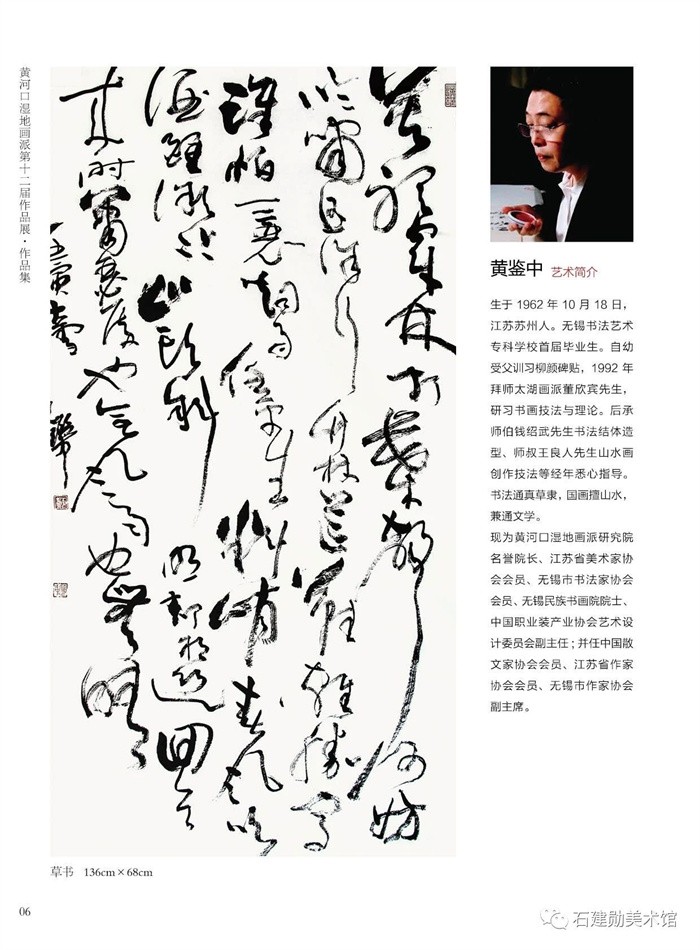 黄河口湿地画派第十二届作品展·作品集
莫听穿林打叶声何妨
吟啸且徐行竹杖芒鞋轻胜马
谁怕一蓑烟雨任平生料峭春风吹
酒醒微冷山头斜照却相迎回首
来时萧瑟处也无风雨也无晴
草书 136cm×68cm
06
黄鉴中 艺术简介
生于 1962 年 10 月 18 日，
江苏苏州人。无锡书法艺术
专科学校首届毕业生。自幼
受父训习柳颜碑贴，1992 年
拜师太湖画派董欣宾先生，
研习书画技法与理论。后承
师伯钱绍武先生书法结体造
型、师叔王良人先生山水画
创作技法等经年悉心指导。
书法通真草隶，国画擅山水，
兼通文学。
现为黄河口湿地画派研究院
名誉院长、江苏省美术家协
会会员、无锡市书法家协会
会员、无锡民族书画院院士、
中国职业装产业协会艺术设
计委员会副主任；并任中国散
文家协会会员、江苏省作家
协会会员、无锡市作家协会
副主席。
石建勋美术馆